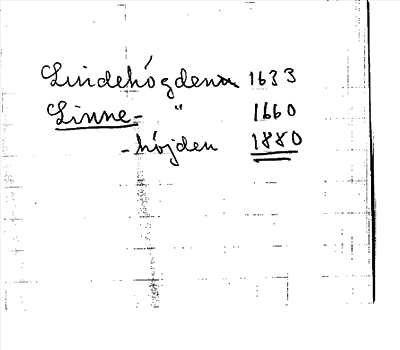 Lindehögden 1633
Linne- " 1660
-höjden 1880